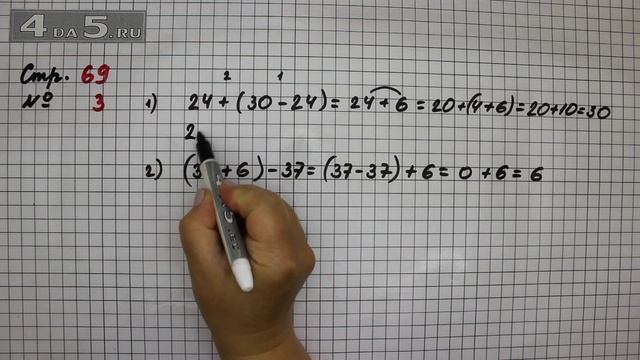 4 DA 5.RU
Стр. 69
№ 3
2 1
1) 24 + (30 - 24) = 24 + 6 = 20 + (4 + 6) = 20 + 10 = 30
2
2) (3 + 6) - 37 = (37 - 37) + 6 = 0 + 6 = 6